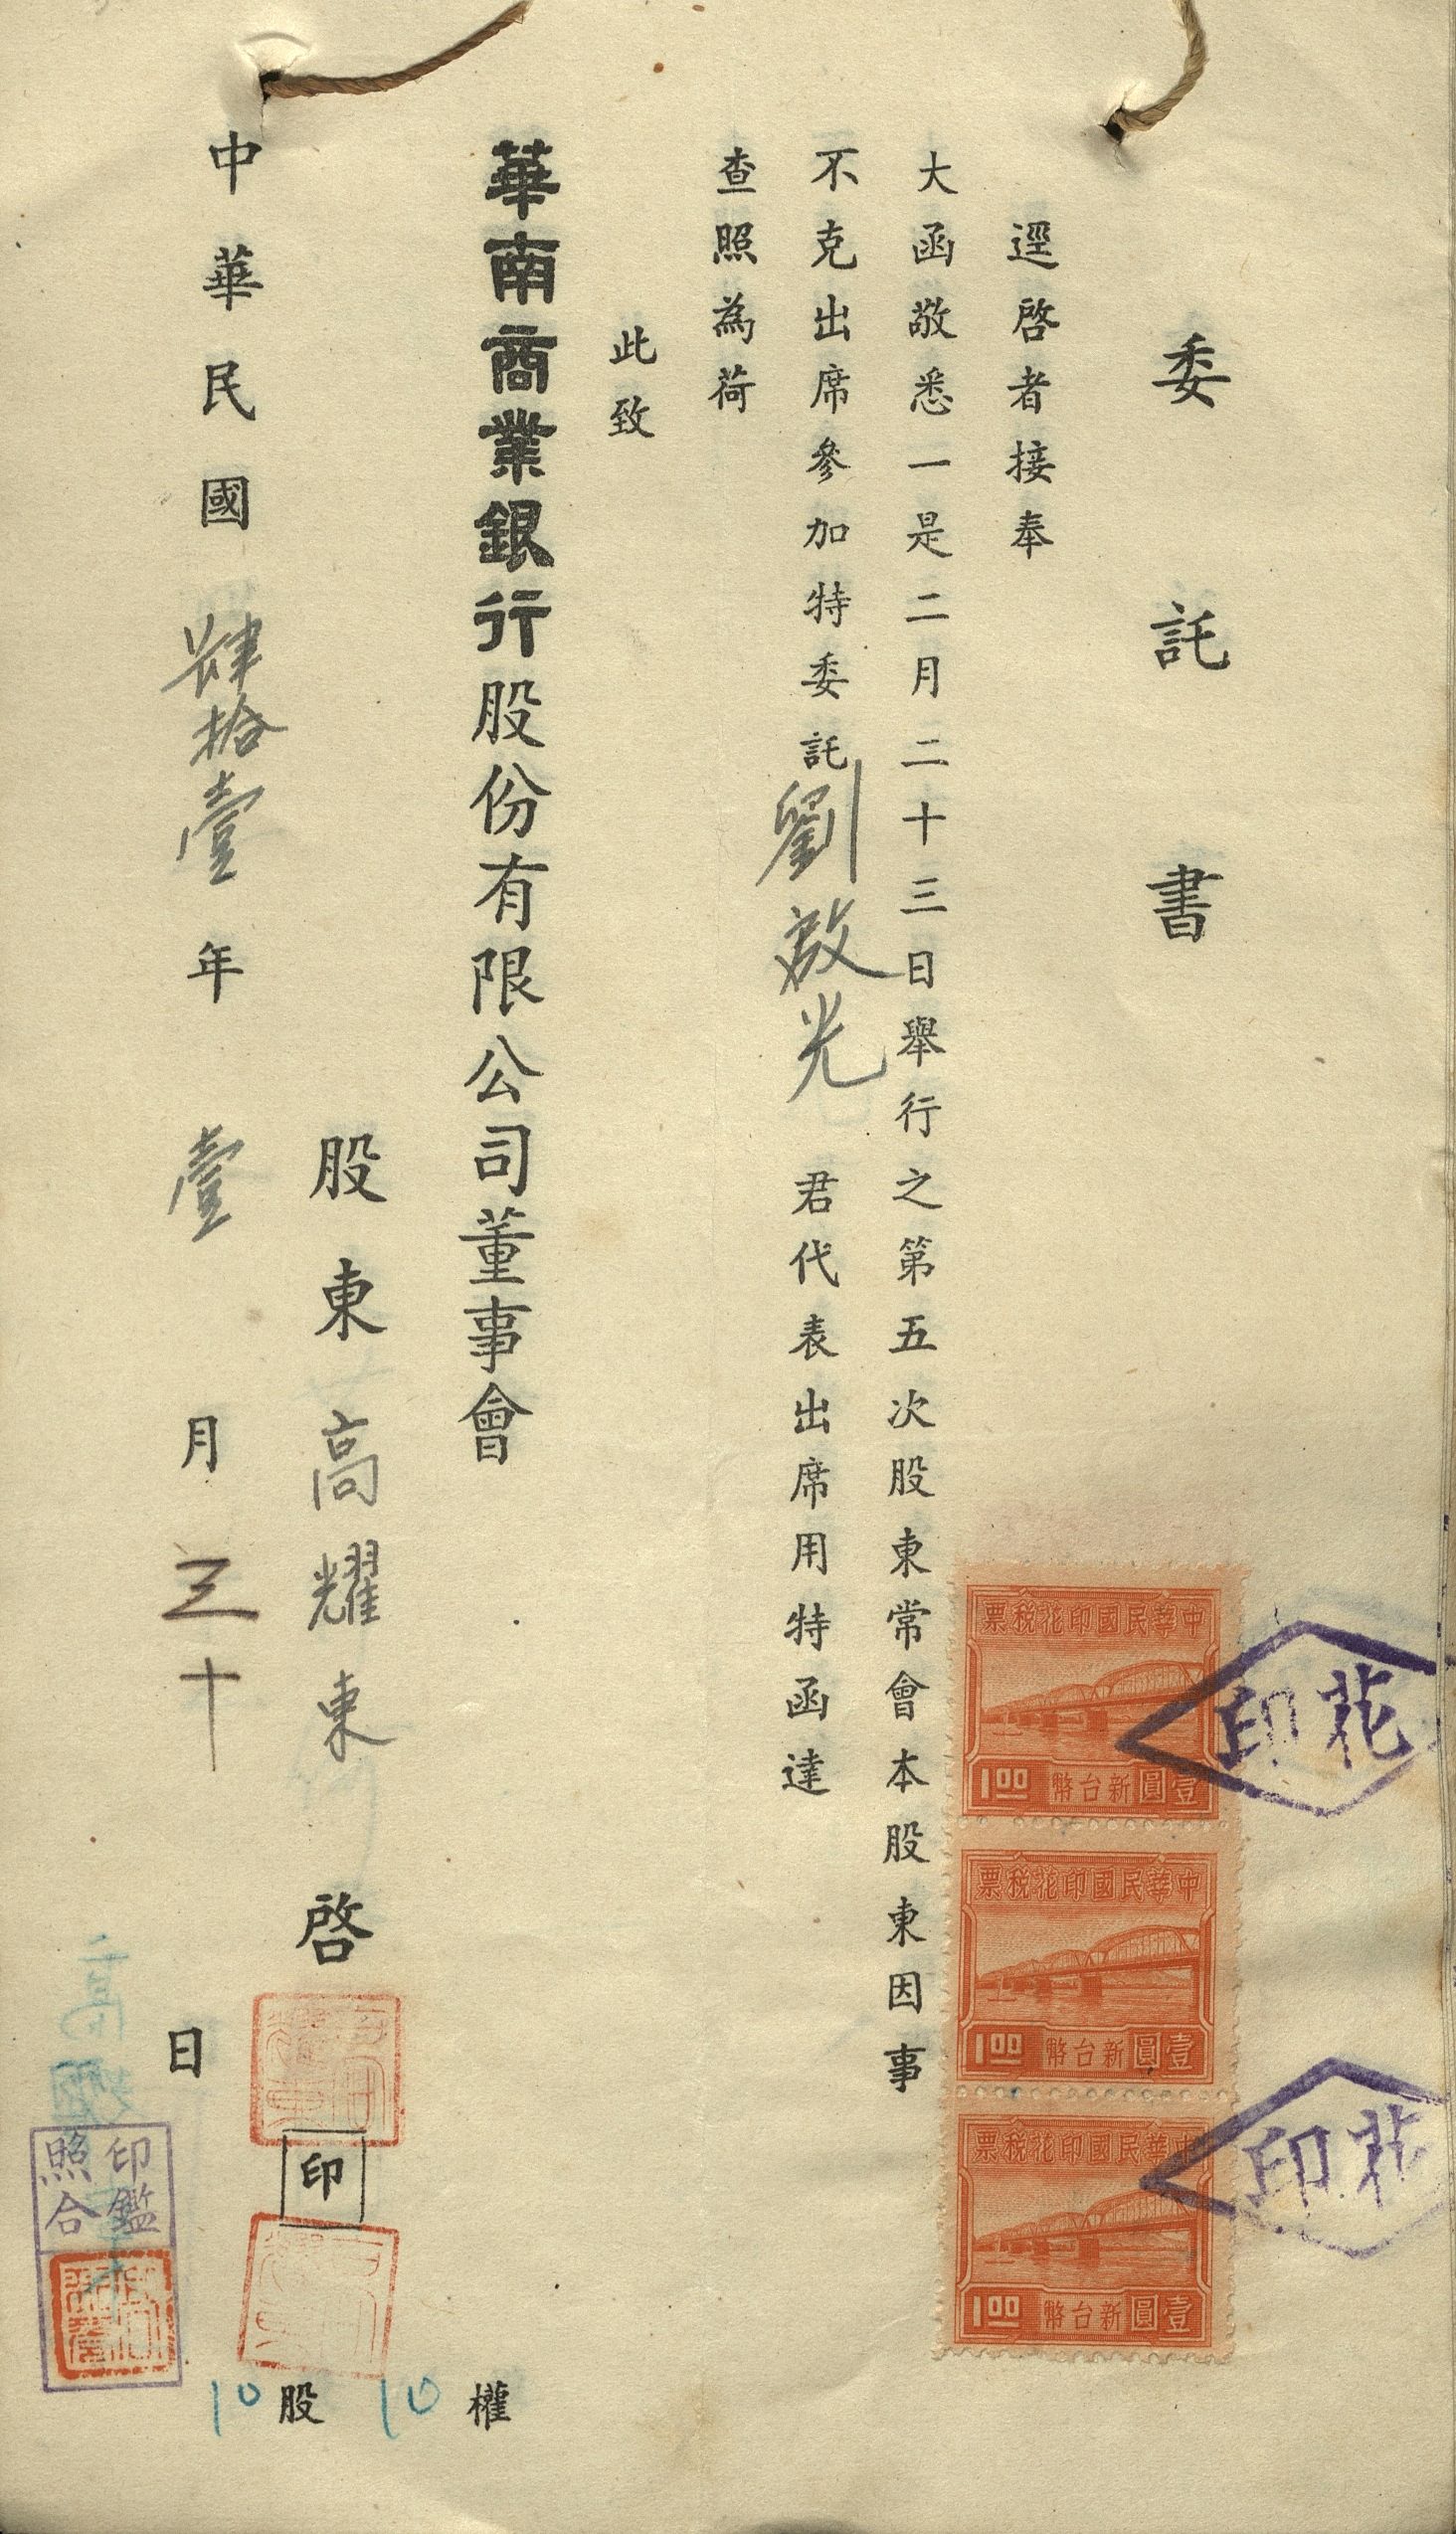 委託書
逕啓者接奉
大函敬悉一是二月二十三日舉行之第五次股東常會本股東因事
不克出席參加特委託劉啟光君代表出席用特函達
查照為荷
此致
華南商業銀行股份有限公司董事會
股東高耀東啓
印
中華民國肆拾壹年壹月三十日
10股 10權
印鑑
照合
票稅花印國民華中
1.00 幣台新 圓壹
票稅花印國民華中
1.00 幣台新 圓壹
票稅花印國民華中
1.00 幣台新 圓壹
印花
印花